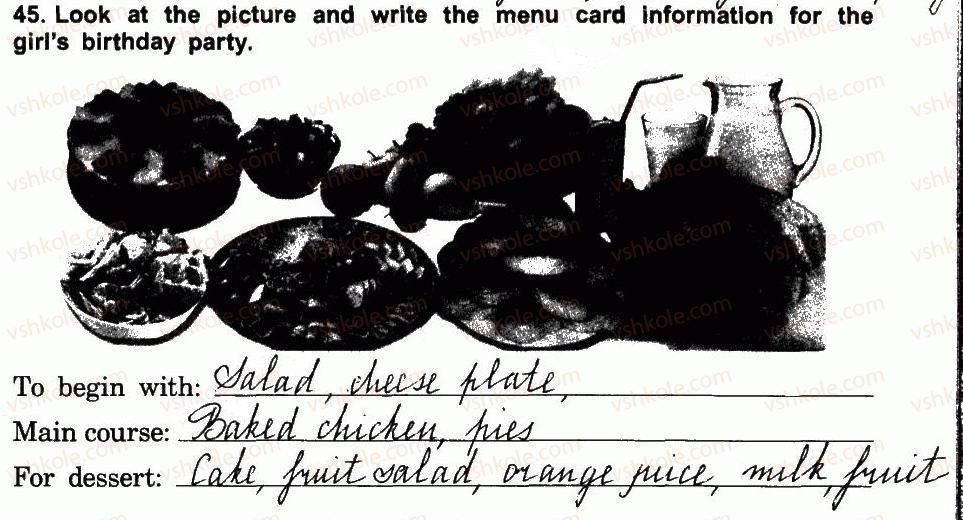 45. Look at the picture and write the menu card information for the
girl's birthday party.
To begin with: Salad, cheese plate,
Main course: Baked chicken, pies
For dessert: Cake, fruit salad, orange juice, milk, fruit
vshkole.com